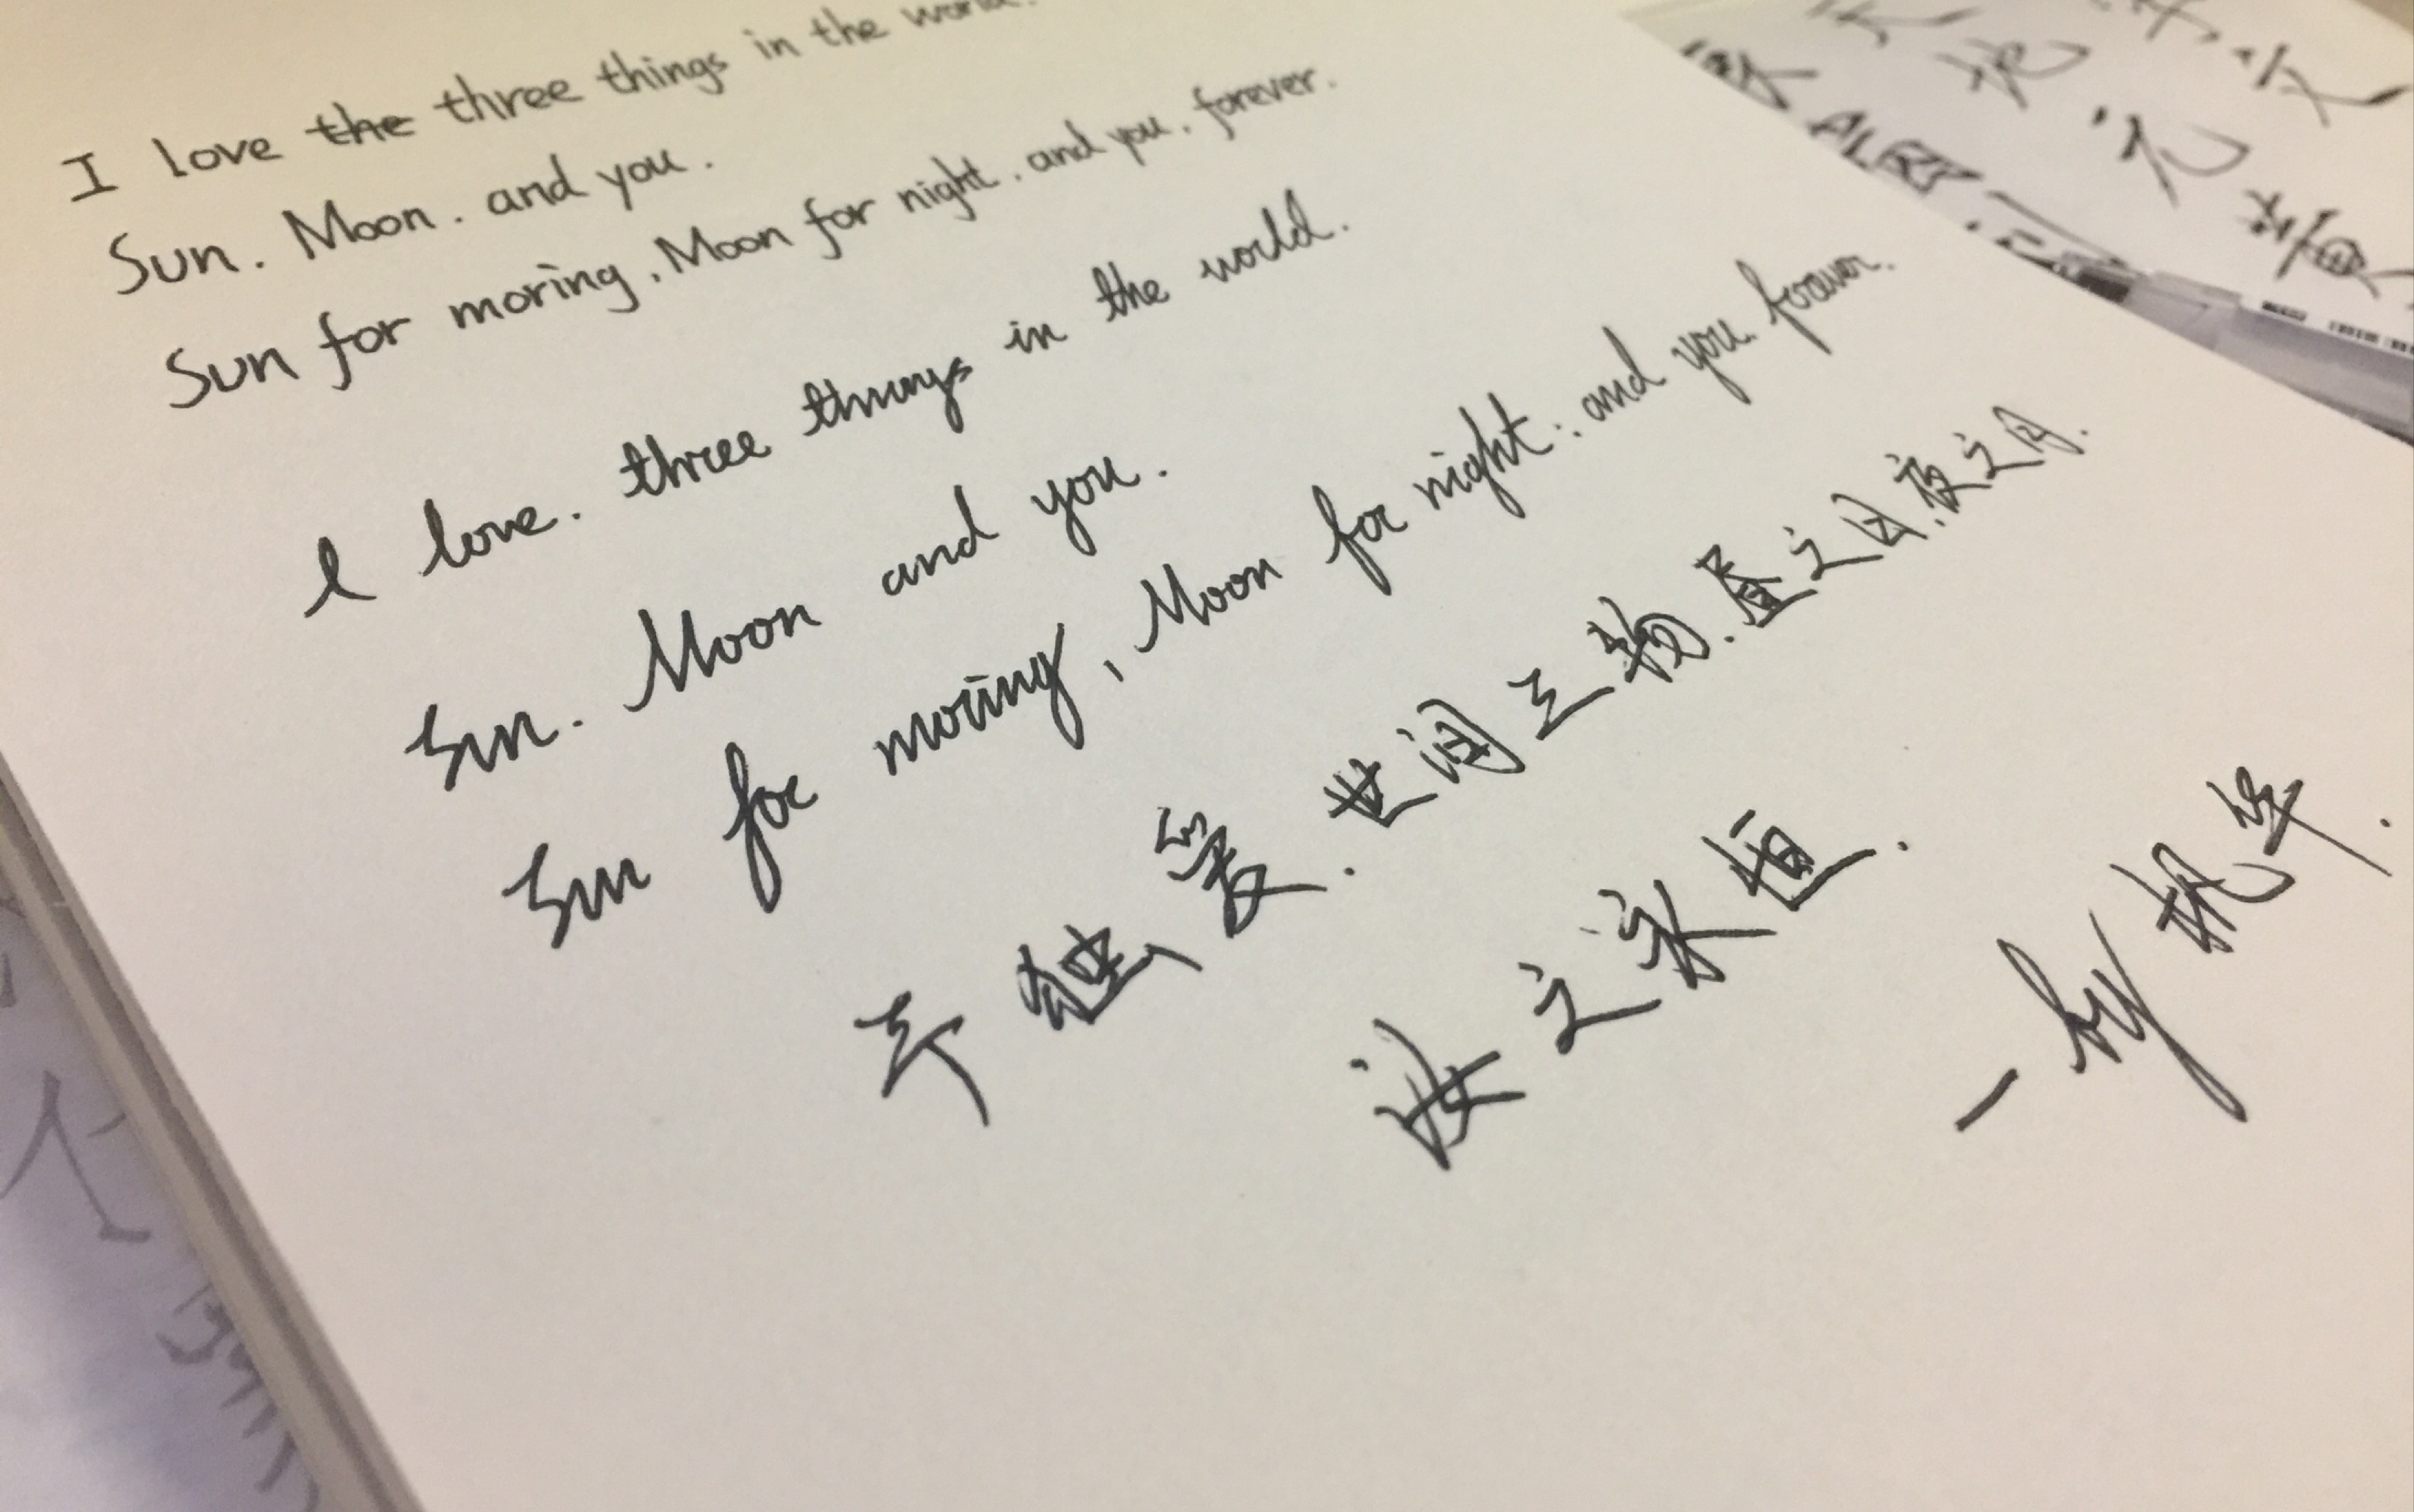 I love the three things in the world.
Sun. Moon. and you.
Sun for moring, Moon for night. and you. forever.
I love. three things in the world.
Sun. Moon and you.
Sun for moring, Moon for night. and you forever.
予独爱.世间三物.昼之日.夜之月.
汝之永恒.
— by
ALERT